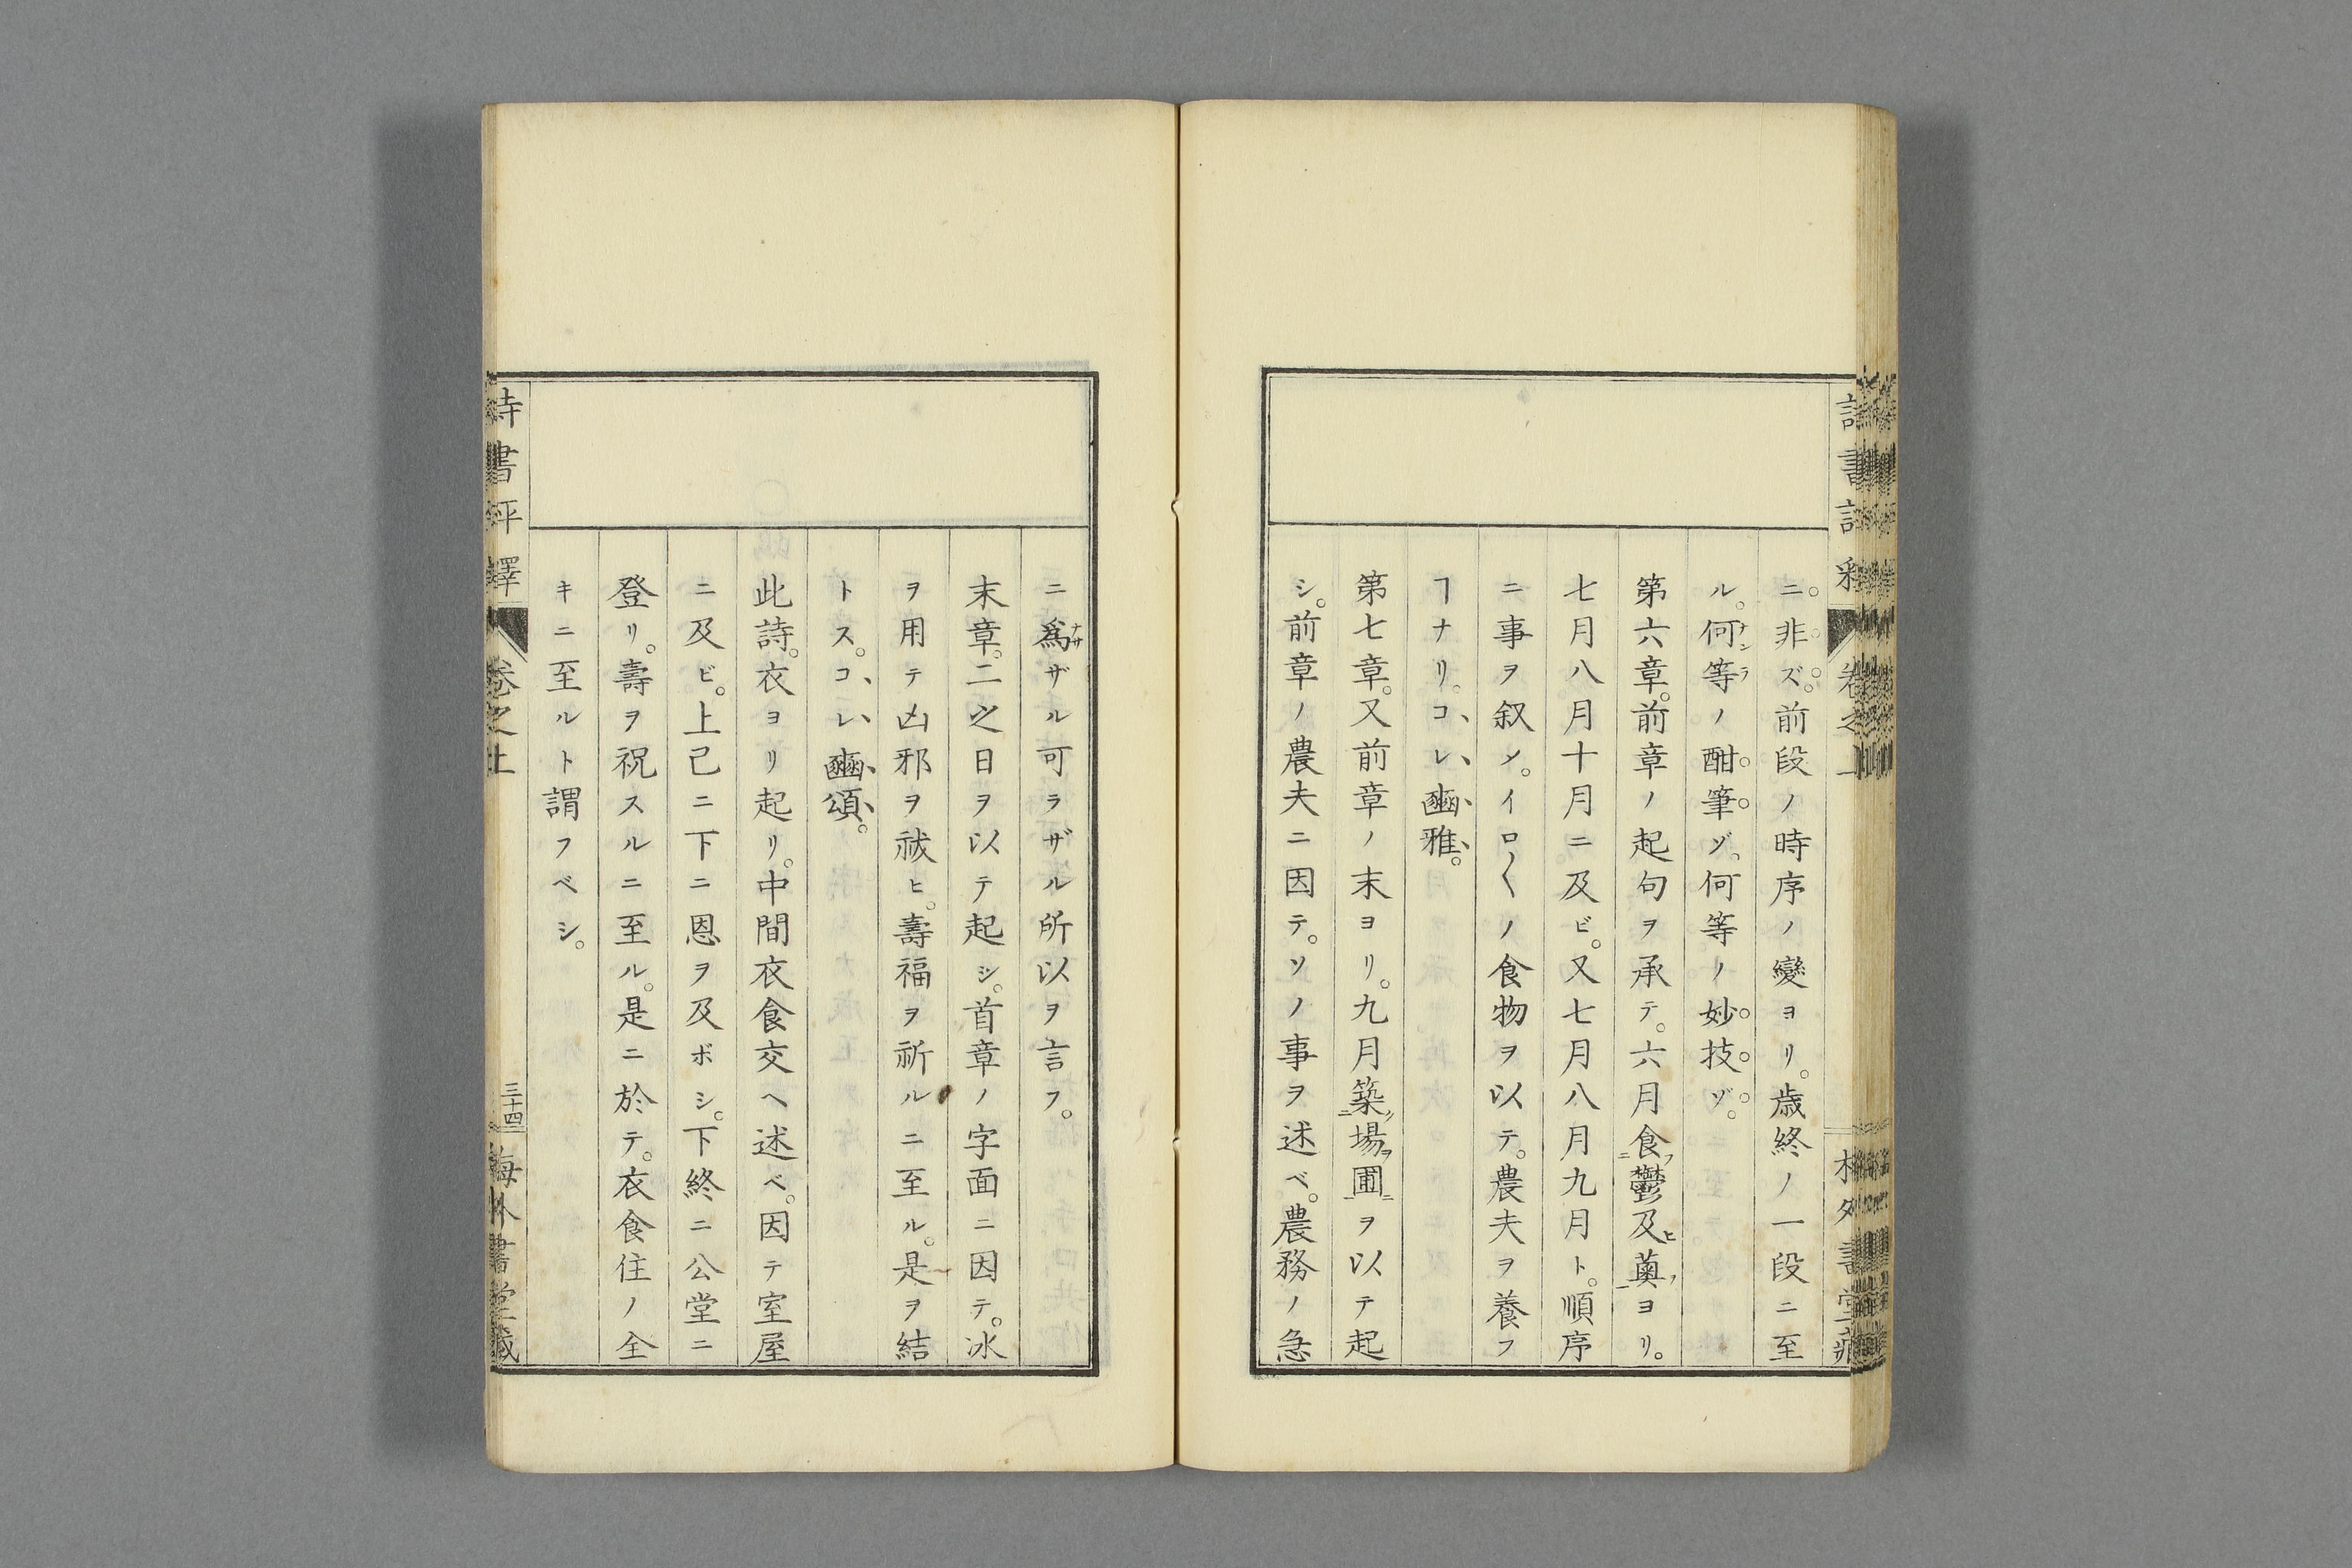 ニ。非ズ。前段ノ時序ノ變ヨリ。歳終ノ一段ニ至
ル。何等ノ酣筆ゾ。何等ノ妙技ゾ。
第六章。前章ノ起句ヲ承テ。六月食鬱及薁ヨリ。
七月八月十月ニ及ビ。又七月八月九月ト。順序
ニ事ヲ叙メ。イロ〱ノ食物ヲ以テ。農夫ヲ養フ
ヿナリ。コレ豳雅。
第七章。又前章ノ末ヨリ。九月築場圃ヲ以テ起
シ。前章ノ農夫ニ因テ。ソノ事ヲ述ベ。農務ノ急
ニ爲ザル可ラザル所以ヲ言フ。
末章。二之日ヲ以テ起シ。首章ノ字面ニ因テ。冰
ヲ用テ凶邪ヲ祓ヒ。壽福ヲ祈ルニ至ル。是ヲ結
トス。コレ豳頌。
此詩。衣ヨリ起リ。中間衣食交ヘ述ベ。因テ室屋
ニ及ビ。上己ニ下ニ恩ヲ及ボシ。下終ニ公堂ニ
登リ。壽ヲ祝スルニ至ル。是ニ於テ。衣食住ノ全
キニ至ルト謂フベシ。
詩書評釋 卷之上 三十四 梅外書堂藏